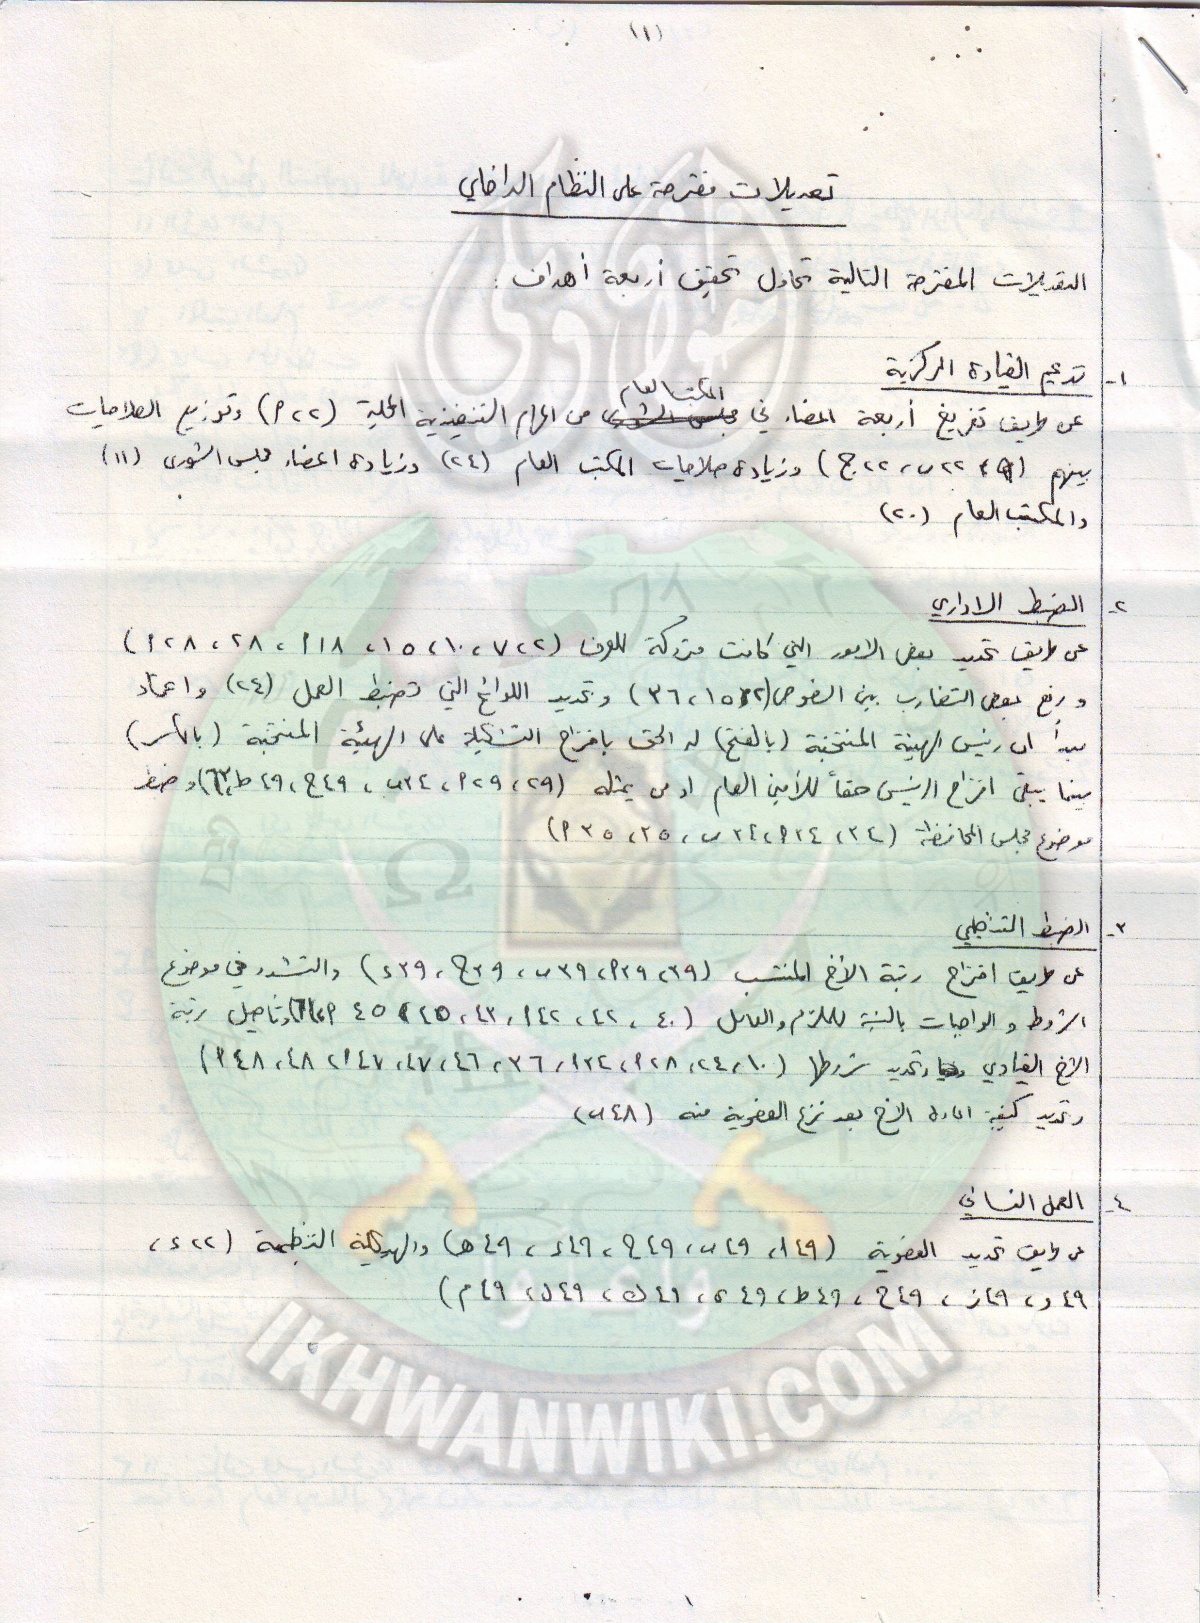 (١)
تعديلات مقترحة على النظام الداخلي
التعديلات المقترحة التالية تحاول تحقيق أربعة أهداف :
١- تدعيم القيادة المركزية
المكتب العام
عن طريق تفريغ أربعة اعضاء في مجلس الشورى من المهام التنفيذية المحلية (٢٢أ) وتوزيع الصلاحيات
بينهم (٢٢ب، ٢٢ج) وزيادة صلاحيات المكتب العام (٢٤) وزيادة اعضاء مجلس الشورى (١١)
والمكتب العام (٢٠)
٢- الضبط الاداري
عن طريق تحديد بعض الامور التي كانت متروكة للعرف (٢، ٧، ١٠، ١٥، ١٨أ، ٢٨، ٢٨أ)
ورفع بعض التضارب بين النصوص (١٥، ٣٦) وتحديد اللوائح التي تضبط العمل (٢٤) واعتماد
مبدأ ان رئيس الهيئة المنتخبة (بالفتح) له الحق باقتراح التشكيلة على الهيئة المنتخبة (بالكسر)
بينما يبقى اقتراح الرئيس حقاً للأمين العام او من يمثله (٢٩، ٢٩أ، ٣٤ب، ٤٩ح، ٤٩ط، ٦٣) وضبط
موضوع مجلس المحافظة (٣٤، ٣٤أ، ٣٤ب، ٣٥، ٣٥أ)
٣- الضبط التنظيمي
عن طريق اقتراح رتبة الأخ المنتسب (٣٩، ٣٩أ، ٣٩ب، ٣٩ج، ٣٩د) والتشدد في موضوع
الشروط والواجبات بالنسبة للملازم والعامل (٤٠، ٤٢، ٤٢أ، ٤٣، ٤٥، ٤٥أ) وتأصيل رتبة
الأخ القيادي وتحديد شروطها (١٠، ٢٤، ٢٨أ، ٣٤أ، ٣٦، ٤٦، ٤٧، ٤٧أ، ٤٨، ٤٨أ)
وتحديد كيفية اعادة الأخ بعد نزع العضوية منه (٤٨ب)
٤- العمل النسائي
عن طريق تحديد العضوية (٤٩أ، ٤٩ب، ٤٩ج، ٤٩د، ٤٩هـ) والهيكلية التنظيمية (٢٢د،
٤٩و، ٤٩ز، ٤٩ح، ٤٩ط، ٤٩ي، ٤٩ك، ٤٩ل، ٤٩م)
الإخوان ويكي
وأعدوا
IKHWANWIKI.COM
١